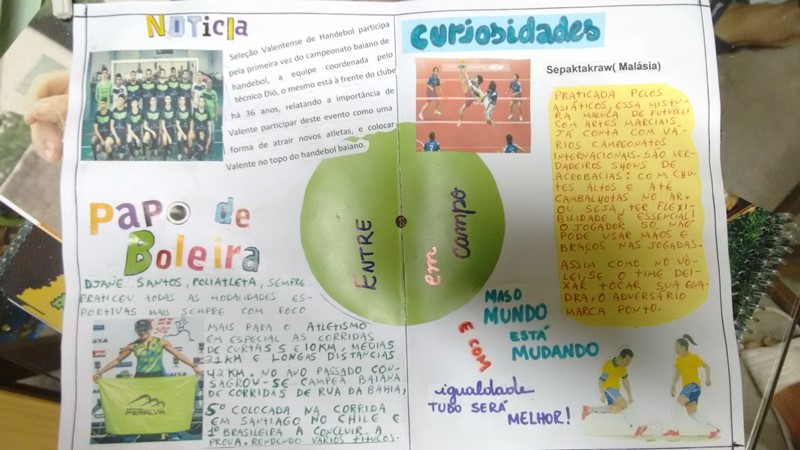 NOTICIA
Seleção Valentense de Handebol participa
pela primeira vez do campeonato baiano de
handebol, a equipe coordenada pelo
técnico Dió, o mesmo está à frente do clube
há 36 anos, relatando a importância de
Valente participar deste evento como uma
forma de atrair novos atletas, e colocar
Valente no topo do handebol baiano.
PAPO de
Boleira
DJANE SANTOS, POLIATLETA, SEMPRE
PRATICOU TODAS AS MODALIDADES ES-
PORTIVAS MAIS SEMPRE COM FOCO
MAIS PARA O ATLETISMO
EM ESPECIAL AS CORRIDAS
DE CURTAS 5 E 10KM, MÉDIAS
21KM E LONGAS DISTANCIAS
42KM. NO ANO PASSADO CON-
SAGROU-SE CAMPEÃ BAIANA
DE CORRIDAS DE RUA DA BAHIA,
5º COLOCADA NA CORRIDA
EM SANTIAGO NO CHILE E
1ª BRASILEIRA A CONCLUIR A
PROVA. RENDENDO VÁRIOS TITULOS.
PERALVA
ENTRE
em
campo
curiosidades
Sepaktakraw( Malásia)
PRATICADA PELOS
ASIÁTICOS, ESSA MISTU-
RA MALUCA DE FUTEVOLEI
COM ARTES MARCIAIS
JÁ CONTA COM VÁ-
RIOS CAMPEONATOS
INTERNACIONAIS. SÃO VER-
DADEIROS SHOWS DE
ACROBACIAS: COM CHU-
TES ALTOS E ATÉ
CAMBALHOTAS NO AR.
OU SEJA, TER FLEXI-
BILIDADE É ESSENCIAL!
O JOGADOR SÓ NÃO
PODE USAR MÃOS E
BRAÇOS NAS JOGADAS.
ASSIM COMO NO VÔ-
LEI, SE O TIME DEI-
XAR TOCAR SUA QUA-
DRA, O ADVERSÁRIO
MARCA PONTO.
MAS O
MUNDO
ESTÁ
MUDANDO
E COM
igualdade
TUDO SERÁ
MELHOR!